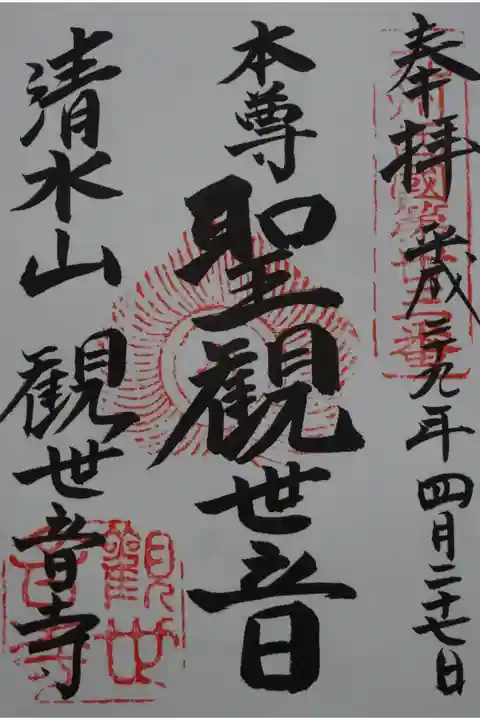 奉拝 平成二十九年四月二十七日
本尊 聖観世音
清水山 観世音寺
観世音寺